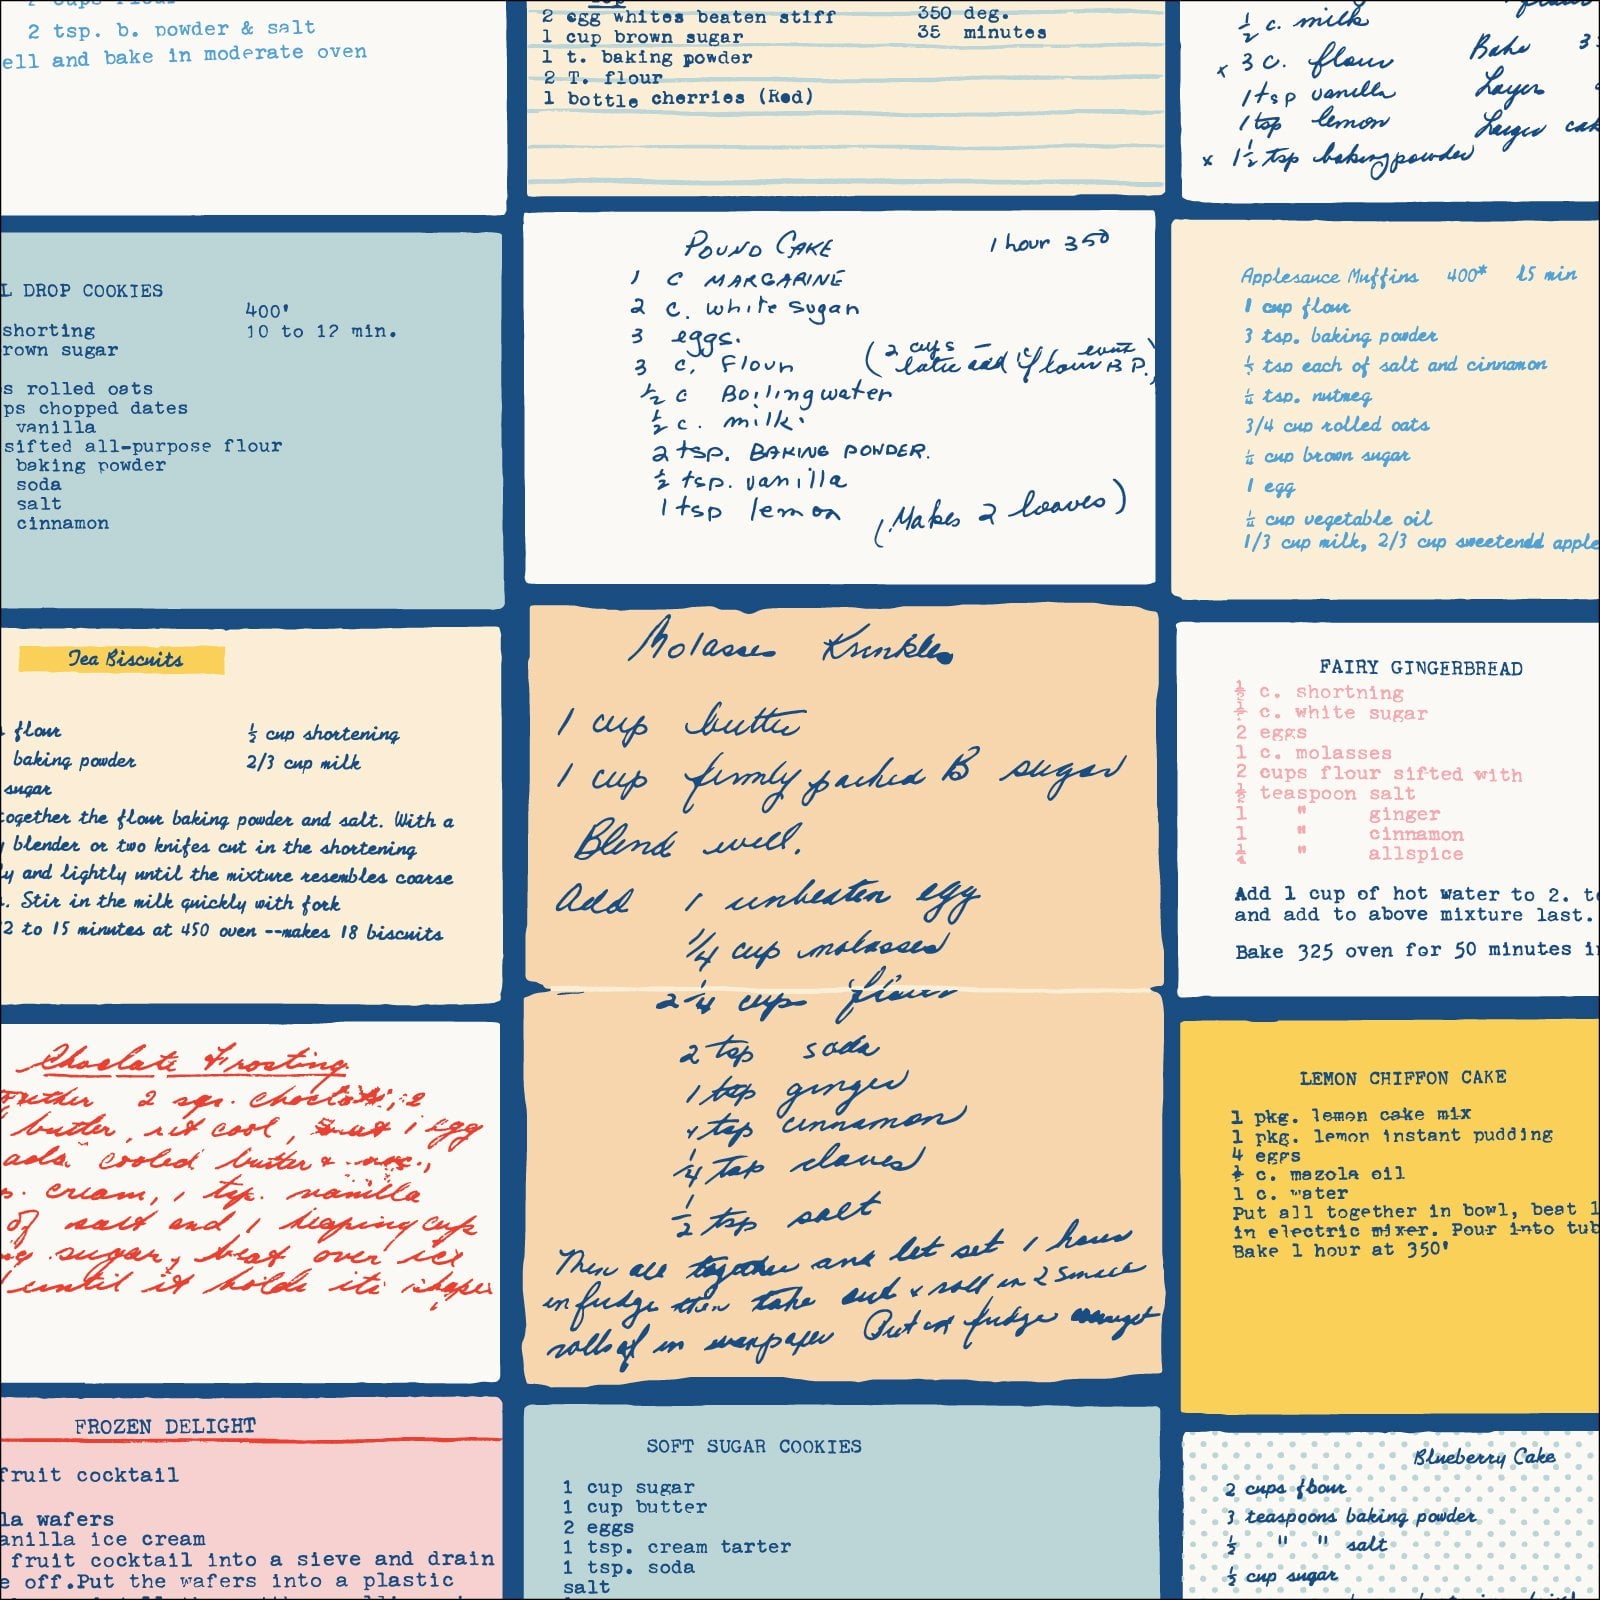 2 tsp. b. powder & salt
ell and bake in moderate oven
2 egg whites beaten stiff 350 deg.
1 cup brown sugar 35 minutes
1 t. baking powder
2 T. flour
1 bottle cherries (Red)
½ c. milk
x 3 c. flour Bake
1 tsp vanilla Layer
1 tsp lemon Larger cak
x 1½ tsp baking powder
L DROP COOKIES
400'
shorting 10 to 12 min.
rown sugar
s rolled oats
ps chopped dates
vanilla
sifted all-purpose flour
baking powder
soda
salt
cinnamon
POUND CAKE 1 hour 350
1 C MARGARINE
2 c. white sugar
3 eggs.
3 c. Flour (2 cups
½ c Boiling water
½ c. milk.
2 tsp. BAKING POWDER.
½ tsp. vanilla
1 tsp lemon (Makes 2 loaves)
Applesauce Muffins 400* 15 min
1 cup flour
3 tsp. baking powder
½ tsp each of salt and cinnamon
¼ tsp. nutmeg
3/4 cup rolled oats
¼ cup brown sugar
1 egg
¼ cup vegetable oil
1/3 cup milk, 2/3 cup sweetendd apple
Tea Biscuits
flour ½ cup shortening
baking powder 2/3 cup milk
sugar
together the flour baking powder and salt. With a
blender or two knifes cut in the shortening
y and lightly until the mixture resembles coarse
. Stir in the milk quickly with fork
2 to 15 minutes at 450 oven --makes 18 biscuits
Molasses Krinkles
1 cup butter
1 cup firmly packed B sugar
Blend well.
Add 1 unbeaten egg
¼ cup molasses
2¼ cups flour
2 tsp soda
1 tsp ginger
1 tsp cinnamon
¼ tsp cloves
½ tsp salt
Then all together and let set 1 hour
in fudge then take out & roll in 2 small
rolls of in waxpaper Put in fudge
FAIRY GINGERBREAD
½ c. shortning
½ c. white sugar
2 eggs
1 c. molasses
2 cups flour sifted with
½ teaspoon salt
1 " ginger
1 " cinnamon
¼ " allspice
Add 1 cup of hot water to 2. t
and add to above mixture last.
Bake 325 oven for 50 minutes i
Choclate Frosting
2 sqs. choclate, 2
butter, let cool, 1 egg
add cooled butter &
cream, 1 tsp. vanilla
of salt and 1 heaping cup
sugar, beat over ice
until it holds its shape
LEMON CHIFFON CAKE
1 pkg. lemon cake mix
1 pkg. lemon instant pudding
4 eggs
½ c. mazola oil
1 c. water
Put all together in bowl, beat 1
in electric mixer. Pour into tub
Bake 1 hour at 350'
FROZEN DELIGHT
fruit cocktail
la wafers
anilla ice cream
fruit cocktail into a sieve and drain
e off.Put the wafers into a plastic
SOFT SUGAR COOKIES
1 cup sugar
1 cup butter
2 eggs
1 tsp. cream tarter
1 tsp. soda
salt
Blueberry Cake
2 cups flour
3 teaspoons baking powder
½ " " salt
½ cup sugar